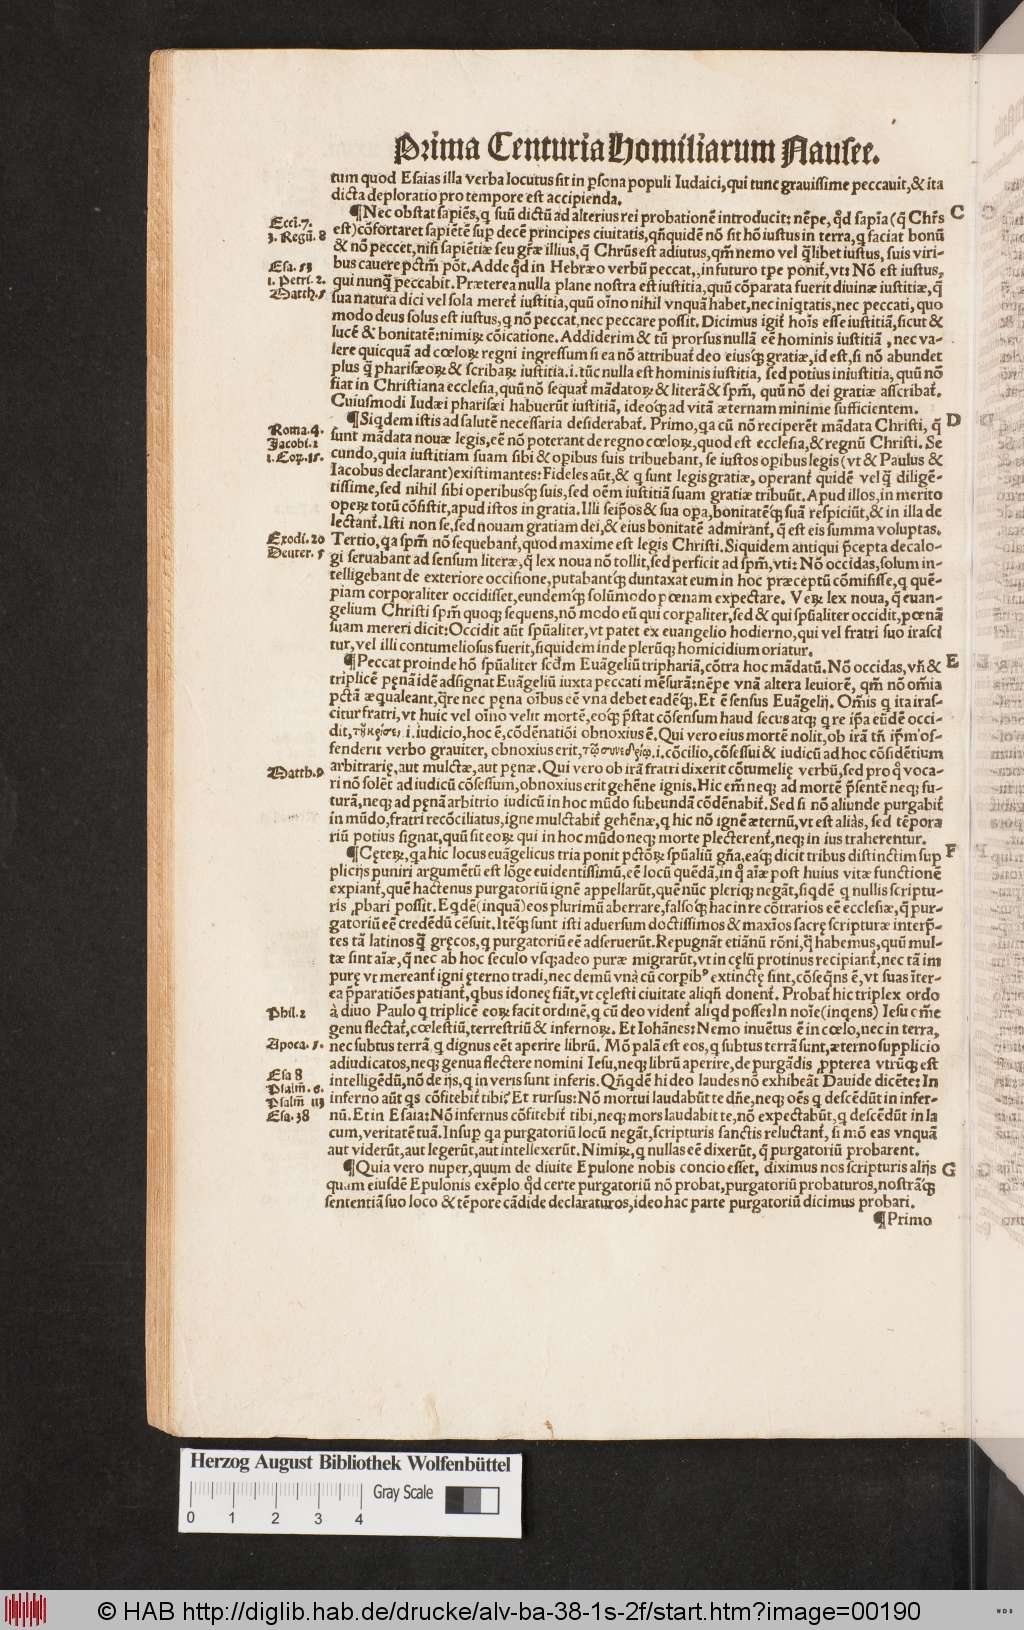 Prima Centuria Homiliarum Nauseę.
tum quod Esaias illa verba locutus sit in p̃sona populi Iudaici, qui tunc grauissime peccauit, & ita
dicta deploratio pro tempore est accipienda.
¶Nec obstat sapiẽs, q suũ dictũ ad alterius rei probationẽ introducit: nẽpe, qd̃ sapĩa (q̃ Chrĩs C
Eccĩ. 7.
est) cõfortaret sapiẽtẽ sup̃ decẽ principes ciuitatis, qñquidẽ nõ sit hõ iustus in terra, q faciat bonũ
3. Regũ. 8
& nõ peccet, nisi sapiẽtiæ seu gr̃æ illius, q̃ Chrũs est adiutus, qm̃ nemo vel q̃libet iustus, suis viri-
bus cauere pctm̃ põt. Adde qd̃ in Hebræo verbũ peccat, in futuro tp̃e ponit̃, vt: Nõ est iustus,
Esa. 53
qui nunq̃ peccabit. Præterea nulla plane nostra est iustitia, quũ cõparata fuerit diuinæ iustitiæ, q̃
1. Petri. 2.
sua natura dici vel sola meret̃ iustitia, quũ oĩno nihil vnquã habet, nec iniq̃tatis, nec peccati, quo
Matth. 5
modo deus solus est iustus, q nõ peccat, nec peccare possit. Dicimus igit̃ hoĩs esse iustitiã, sicut &
lucẽ & bonitatẽ: nimiꝝ cõicatione. Addiderim & tũ prorsus nullã eẽ hominis iustitiã, nec va-
lere quicquã ad cœloꝝ regni ingressum si ea nõ attribuat̃ deo eiusq̃ gratiæ, id est, si nõ abundet
plus q̃ pharisæoꝝ & scribaꝝ iustitia. i. tũc nulla est hominis iustitia, sed potius iniustitia, quũ nõ
fiat in Christiana ecclesia, quũ nõ sequat̃ mãdatoꝝ & literã & spm̃, quũ nõ dei gratiæ ascribat̃.
Cuiusmodi Iudæi pharisæi habuerũt iustitiã, ideoq̃ ad vitã æternam minime sufficientem.
¶Siqdem istis ad salutẽ necessaria desiderabat̃. Primo, qa cũ nõ reciperẽt mãdata Christi, q̃ D
Roma. 4.
sunt mãdata nouæ legis, eẽ nõ poterant de regno cœloꝝ, quod est ecclesia, & regnũ Christi. Se
Jacobi. 2
cundo, quia iustitiam suam sibi & opibus suis tribuebant, se iustos opibus legis (vt & Paulus &
1. Coꝝ. 15.
Iacobus declarant) existimantes: Fideles aũt, & q sunt legis gratiæ, operant̃ quidẽ vel q̃ diligẽ-
tissime, sed nihil sibi operibusq̃ suis, sed oẽm iustitiã suam gratiæ tribuũt. Apud illos, in merito
opeꝝ totũ cõsistit, apud istos in gratia. Illi seip̃os & sua opa, bonitatẽq̃ suã respiciũt, & in illa de
lectant̃. Isti non se, sed nouam gratiam dei, & eius bonitatẽ admirant̃, q̃ est eis summa voluptas.
Exodi. 20
Tertio, qa spm̃ nõ sequebant̃, quod maxime est legis Christi. Siquidem antiqui p̃cepta decalo-
Deuter. 5
gi seruabant ad sensum literæ, q̃ lex noua nõ tollit, sed perficit ad spm̃, vti: Nõ occidas, solum in-
telligebant de exteriore occisione, putabantq̃ duntaxat eum in hoc præceptũ cõmisisse, q quẽ-
piam corporaliter occidisset, eundemq̃ solũmodo pœnam expectare. Veꝝ lex noua, q̃ euan-
gelium Christi spm̃ quoq; sequens, nõ modo eũ qui corpaliter, sed & qui spũaliter occidit, pœnã
suam mereri dicit: Occidit aũt spũaliter, vt patet ex euangelio hodierno, qui vel fratri suo irasci
tur, vel illi contumeliosus fuerit, siquidem inde plerũq; homicidium oriatur.
¶Peccat proinde hõ spũaliter scdm̃ Euãgeliũ triphariã, cõtra hoc mãdatũ. Nõ occidas, vñ & E
triplicẽ pęnã idẽ adsignat Euãgeliũ iuxta peccati mẽsurã: nẽpe vnã altera leuiorẽ, qm̃ nõ om̃ia
pctã æqualeant, q̃re nec pęna oĩbus eẽ vna debet eadẽq̃. Et ẽ sensus Euãgelij. Om̃is q ita iras-
citur fratri, vt huic vel oĩno velit mortẽ, eoq̃ p̃stat cõsensum haud secus atq; q re ip̃a eũdẽ occi-
dit, τῇ κρίσει, i. iudicio, hoc ẽ, cõdẽnatiõi obnoxius ẽ. Qui vero eius mortẽ nolit, ob irã tñ ip̃m of-
fenderit verbo grauiter, obnoxius erit, τῷ συνεδρίῳ. i. cõcilio, cõsessui & iudicũ ad hoc cõsidẽtium
Matth. 9
arbitrarię, aut mulctæ, aut pęnæ. Qui vero ob irã fratri dixerit cõtumelię verbũ, sed pro q̃ voca-
ri nõ solẽt ad iudicũ cõsessum, obnoxius erit gehẽne ignis. Hic em̃ neq; ad mortẽ p̃sentẽ neq; fu-
turã, neq; ad pęnã arbitrio iudicũ in hoc mũdo subeundã cõdẽnabit̃. Sed si nõ aliunde purgabit̃
in mũdo, fratri recõciliatus, igne mulctabit̃ gehẽnæ, q hic nõ ignẽ æternũ, vt est aliàs, sed tẽpora
riũ potius signat, quũ sit eoꝝ qui in hoc mũdo neq; morte plecterent̃, neq; in ius traherentur.
¶Cęteꝝ, qa hic locus euãgelicus tria ponit pctõꝝ spũaliũ gña, eaq; dicit tribus distinctim sup F
plicijs puniri argumẽtũ est lõge euidentissimũ, eẽ locũ quẽdã, in q̃ aĩæ post huius vitæ functionẽ
expiant̃, quẽ hactenus purgatoriũ ignẽ appellarũt, quẽ nũc pleriq; negãt, siqdẽ q nullis scriptu-
ris ꝓbari possit. Eqdẽ (inquã) eos plurimũ aberrare, falsoq̃ hac in re cõtrarios eẽ ecclesiæ, q̃ pur-
gatoriũ eẽ credẽdũ cẽsuit. Itẽq̃ sunt isti aduersum doctissimos & maxĩos sacrę scripturæ interp̃-
tes tã latinos q̃ gręcos, q purgatoriũ eẽ adseruerũt. Repugnãt etiãnũ rõni, q̃ habemus, quũ mul-
tæ sint aĩæ, q̃ nec ab hoc seculo vsq; adeo puræ migrarũt, vt in cęlũ protinus recipiant̃, nec tã im
purę vt mereant̃ igni ęterno tradi, nec demũ vnà cũ corpib⁹ extinctę sint, cõseq̃ns ẽ, vt suas ĩter-
ea p̃paratiões patiant̃, qbus idoneę fiãt, vt cęlesti ciuitate aliqñ donent̃. Probat̃ hic triplex ordo
Phil. 2
à diuo Paulo q triplicẽ eoꝝ facit ordinẽ, q cũ deo vident̃ aliqd posse: In noĩe (inqens) Iesu om̃e
genu flectat̃, cœlestiũ, terrestriũ & infernoꝝ. Et Iohãnes: Nemo inuẽtus ẽ in cœlo, nec in terra,
Apoca. 5.
nec subtus terrã q dignus eẽt aperire librũ. Mõ palã est eos, q subtus terrã sunt, æterno supplicio
adiudicatos, neq; genua flectere nomini Iesu, neq; librũ aperire, de purgãdis ꝓpterea vtrũq̃ est
Esa 8
intelligẽdũ, nõ de ijs, q in veris sunt inferis. Qñqdẽ hi deo laudes nõ exhibeãt Dauide dicẽte: In
Psalm̃. 6.
inferno aũt qs cõfitebit̃ tibi? Et rursus: Nõ mortui laudabũt te dñe, neq; oẽs q descẽdũt in infer-
Psalm̃ 113
nũ. Et in Esaia: Nõ infernus cõfitebit̃ tibi, neq; mors laudabit te, nõ expectabũt, q descẽdũt in la
Esa. 38
cum, veritatẽ tuã. Insup̃ qa purgatoriũ locũ negãt, scripturis sanctis reluctant̃, si mõ eas vnquã
aut viderũt, aut legerũt, aut intellexerũt. Nimiꝝ, q nullas eẽ dixerũt, q̃ purgatoriũ probarent.
¶Quia vero nuper, quum de diuite Epulone nobis concio esset, diximus nos scripturis alijs G
quam eiusdẽ Epulonis exẽplo qd̃ certe purgatoriũ nõ probat, purgatoriũ probaturos, nostrãq̃
sententiã suo loco & tẽpore cãdide declaraturos, ideo hac parte purgatoriũ dicimus probari.
¶Primo
Herzog August Bibliothek Wolfenbüttel
Gray Scale
0 1 2 3 4
© HAB http://diglib.hab.de/drucke/alv-ba-38-1s-2f/start.htm?image=00190